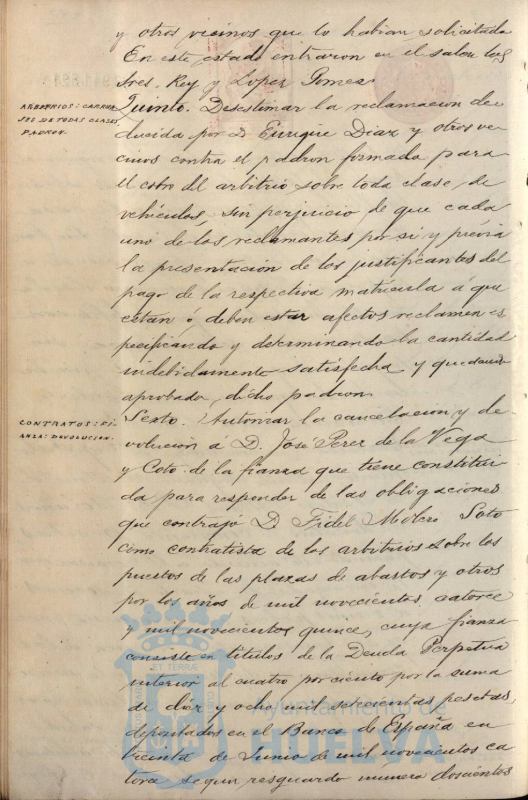 y otros vecinos que lo habian solicitado
En este estado entraron en el salon los
Sres. Rey y Lopez Gomez
ARBITRIOS: CARRUA
JES DE TODAS CLASES
PADRON.
Quinto. Desestimar la reclamacion de
ducida por D Enrique Diaz y otros ve
cinos contra el padron formado para
el cobro del arbitrio sobre toda clase de
vehículos, sin perjuicio de que cada
uno de los reclamantes por si y previa
la presentacion de los justificantes del
pago de la respectiva matrícula a que
estan ó deben estar afectos reclamen es
pecificando y determinando la cantidad
indebidamente satisfecha y quedando
aprobado dicho padron
CONTRATOS: FI
ANZA: DEVOLUCION.
Sexto. Autorizar la cancelacion y de
volucion á D. José Perez de la Vega
y Coto de la fianza que tiene constitui
da para responder de las obligaciones
que contrajo D Fidel Molero Soto
como contratista de los arbitrios sobre los
puestos de las plazas de abastos y otros
por los años de mil novecientos catorce
y mil novecientos quince, cuya fianza
consiste en titulos de la Deuda Perpetua
interior al cuatro por ciento por la suma
de diez y ocho mil setecientas pesetas,
depositados en el Banco de España en
treinta de Junio de mil novecientos ca
torce segun resguardo numero doscientos
Ayuntamiento de
HUELVA